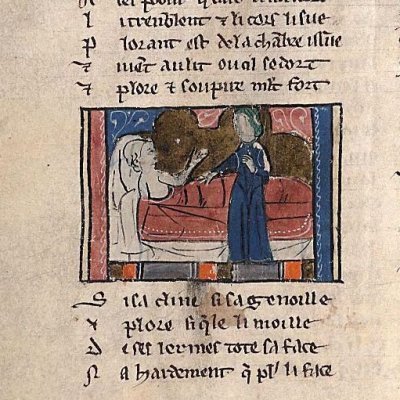 L i trenblent ⁊ li cors li sue
P lorant est de la chambre issue
⁊ vient au lit ou cil se dort
⁊ plore ⁊ soupire mlt fort
S i sacline si sagenoille
⁊ plore si qle li moille
D e ses lermes tote sa face
N a hardement q pl' li face